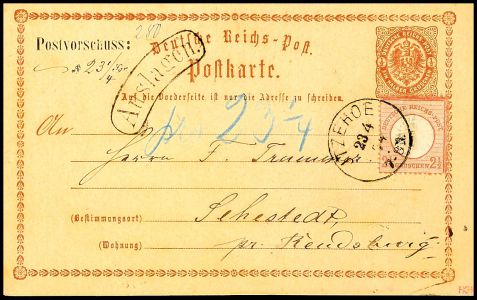 Deutsche Reichs-Post.
Postvorschuss:
Postkarte.
Auslagen.
23 1/4
Auf die Vorderseite ist nur die Adresse zu schreiben.
23 1/4
An
DEUTSCHE REICHS-POST
2½ GROSCHEN 2½
ITZEHOE
23 4
Herrn F.
(Bestimmungsort)
Sehestedt,
(Wohnung)
pr. Rendsburg.